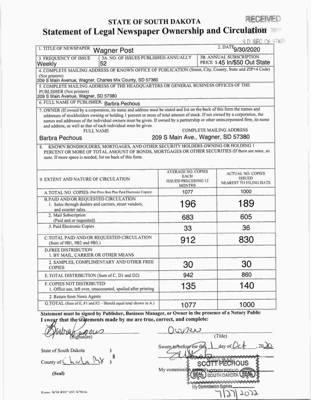 STATE OF SOUTH DAKOTA
RECEIVED
Statement of Legal Newspaper Ownership and Circulation
S.D. SEC. OF STATE
1. TITLE OF NEWSPAPER
Wagner Post
2. DATE
9/30/2020
3. FREQUENCY OF ISSUE
Weekly
3A. NO. OF ISSUES PUBLISHED ANNUALLY
52
3B. ANNUAL SUBSCRIPTION
PRICE $ 45 In/$50 Out State
4. COMPLETE MAILING ADDRESS OF KNOWN OFFICE OF PUBLICATION (Street, City, County, State and ZIP+4 Code)
(Not printers)
209 S Main Avenue, Wagner, Charles Mix County, SD 57380
5. COMPLETE MAILING ADDRESS OF THE HEADQUARTERS OR GENERAL BUSINESS OFFICES OF THE
PUBLISHER (Not printer)
209 S Main Avenue, Wagner, SD 57380
6. FULL NAME OF PUBLISHER: Barbra Pechous
7. OWNER (If owned by a corporation, its name and address must be stated and list on the back of this form the names and
addresses of stockholders owning or holding 1 percent or more of total amount of stock. If not owned by a corporation, the
names and addresses of the individual owners must be given. If owned by a partnership or other unincorporated firm, its name
and address, as well as that of each individual must be given.
FULL NAME
COMPLETE MAILING ADDRESS
Barbra Pechous
209 S Main Ave., Wagner, SD 57380
8. KNOWN BONDHOLDERS, MORTGAGES, AND OTHER SECURITY HOLDERS OWNING OR HOLDING 1
PERCENT OR MORE OF TOTAL AMOUNT OF BONDS, MORTGAGES OR OTHER SECURITIES (If there are none, so
state. If more space is needed, list on back of this form.
9. EXTENT AND NATURE OF CIRCULATION
AVERAGE NO. COPIES
EACH
ISSUED PRECEDING 12
MONTHS
ACTUAL NO. COPIES
ISSUED
NEAREST TO FILING DATE
A. TOTAL NO. COPIES (Net Press Run Plus Paid Electronic Copies)
1077
1000
B. PAID AND/OR REQUESTED CIRCULATION
1. Sales through dealers and carriers, street vendors,
and counter sales.
196
189
2. Mail Subscription
(Paid and or requested)
683
605
3. Paid Electronic Copies
33
36
C. TOTAL PAID AND/OR REQUESTED CIRCULATION
(Sum of 9B1, 9B2 and 9B3.)
912
830
D. FREE DISTRIBUTION
1. BY MAIL, CARRIER OR OTHER MEANS
2. SAMPLES, COMPLIMENTARY AND OTHER FREE
COPIES
30
30
E. TOTAL DISTRIBUTION (Sum of C, D1 and D2)
942
860
F. COPIES NOT DISTRIBUTED
1. Office use, left over, unaccounted, spoiled after printing
135
140
2. Return from News Agents
G. TOTAL (Sum of E, F1 and F2 - Should equal total shown in A.)
1077
1000
Statement must be signed by Publisher, Business Manager, or Owner in the presence of a Notary Public
I swear that the statements made by me are true, correct, and complete:
Barbra Pechous
Owner
(Signature)
(Title)
State of South Dakota )
County of
(Seal)
1 day of Oct, 2020
SCOTT PECHOUS
NOTARY PUBLIC
SOUTH DAKOTA
SEAL
SEAL
My Commission Expires
7/27/2022